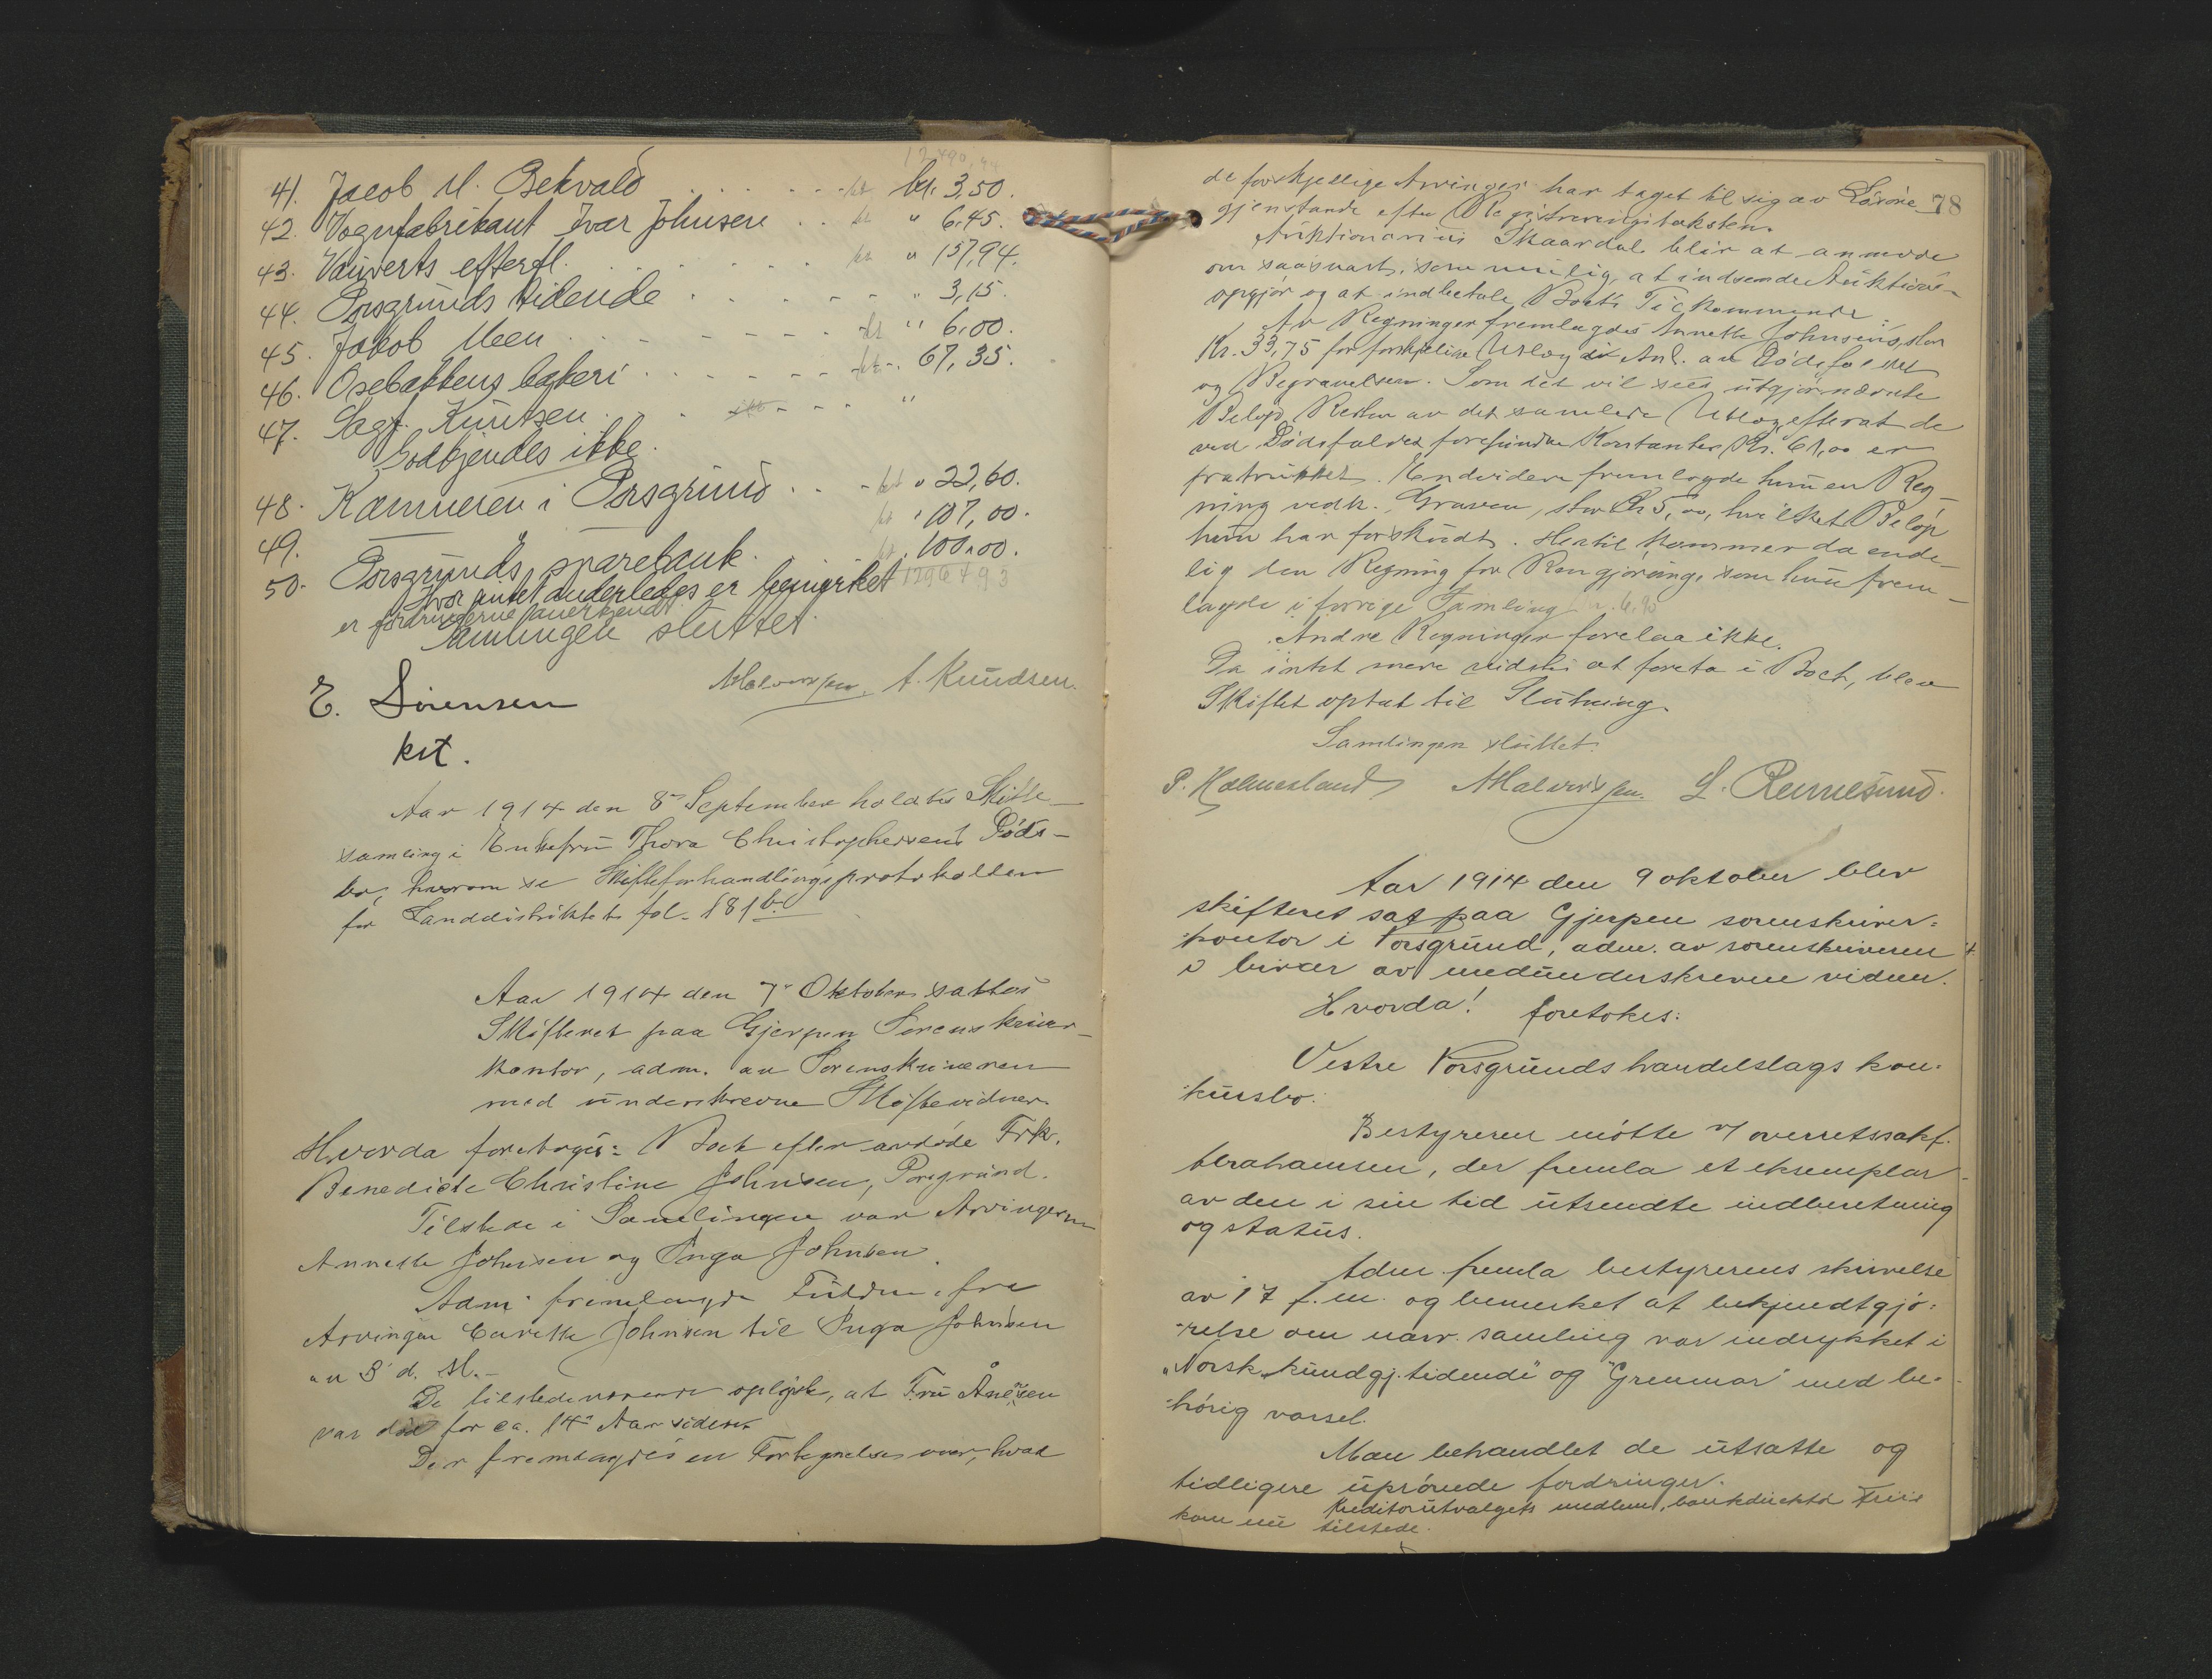 12490,44
41. Jacob M. Bekvald . . . . . . kr. 3,50.
42. Vognfabrikant Ivar Johnsen . . " 6,45.
43. Vauverts efterfl. . . . . . " 157,94.
44. Porsgrunds tidende . . . . . " 3,15.
45. Jakob Meen . . . . . " 6,00.
46. Osebakkens bakeri . . . . . " 67,35.
47. Sagf. Knutsen . . . . . "
Godkjendes ikke.
48. Kæmneren i Porsgrund . . . " 22,60.
49. " 107,00.
50. Porsgrunds sparebank . 100,00.
Hvor intet anderledes er bemerket 12964 93
er fordringerne anerkjendt.
Samlingen sluttet.
A. Knudsen.
E. Sørensen
kst.
Aar 1914 den 8de September holdtes Skifte-
samling i Enkefru Thora Christophersens Døds-
bo, hvorom se Skifteforhandlingsprotokollen
for Landdistriktet fol. 181 b.
Aar 1914 den 7de Oktober sattes
Skifteret paa Gjerpen Sorenskriver-
kontor, adm. av Sorenskriveren
med underskrevne Skiftevidner.
Hvorda foretoges: Boet efter avdøde Frk.
Benedicte Christine Johnsen, Porsgrund.
Tilstede i Samlingen var Arvingerne
Annette Johnsen og Inga Johnsen.
Adm. fremlagde Fuldm. fra
Arvingen Johnsen til Inga Johnsen
av 3 d. M.
De tilstedeværende oplyste, at Fru Ånesen
var død for ca. 14 Aar siden.
Der fremlagdes en Fortegnelse over, hvad
78
de forskjellige Arvinger har taget til sig av Løsøre-
gjenstande efter Registreringstaksten.
Auktionarius Skaardal blir at anmode
om saasnart, som mulig, at indsende Auktions-
opgjør og at indbetale Boets Tilkommende.
Av Regninger fremlagdes Annette Johnsens, stor
Kr. 33,75 for forskjellige Utlæg i Anl. av Dødsfaldet
og Begravelsen. Som det vil sees, utgjør nævnte
Beløp Resten av det samlede Utlæg, efterat de
ved Dødsfaldet forefundne Kontanter Kr. 61,00 er
fratrukket. Endvidere fremlagde hun en Reg-
ning vedk. Graven, stor Kr 5,00, hvilket Beløp
hun har forskudt. Hertil kommer da ende-
lig den Regning for Rengjøring, som hun frem-
lagde i forrige Samling
Andre Regninger forelaa ikke.
Da intet mere vidstes at foreta i Boet, blev
Skiftet optat til Slutning.
Samlingen sluttet.
P. Holmesland L. Rennesund.
Aar 1914 den 9 oktober blev
skifteret sat paa Gjerpen sorenskriver-
kontor i Porsgrund, adm. av sorenskriveren
i bivær av medunderskrevne vidner.
Hvorda! foretokes:
Vestre Porsgrunds handelslags kon-
kursbo.
Bestyreren møtte v/ overretssakf.
Abrahamsen, der fremla et eksemplar
av den i sin tid utsendte indberetning
og status.
Adm. fremla bestyrerens skrivelse
av 17 f.m. og bemerket at bekjendtgjø-
relse om nærv. samling var indrykket i
"Norsk kundgj. tidende" og "Grenmar" med be-
hørig varsel.
Man behandlet de utsatte og
tidligere uprøvede fordringer.
Kreditorutvalgets medlem, bankdirektør Friis
kom nu tilstede.